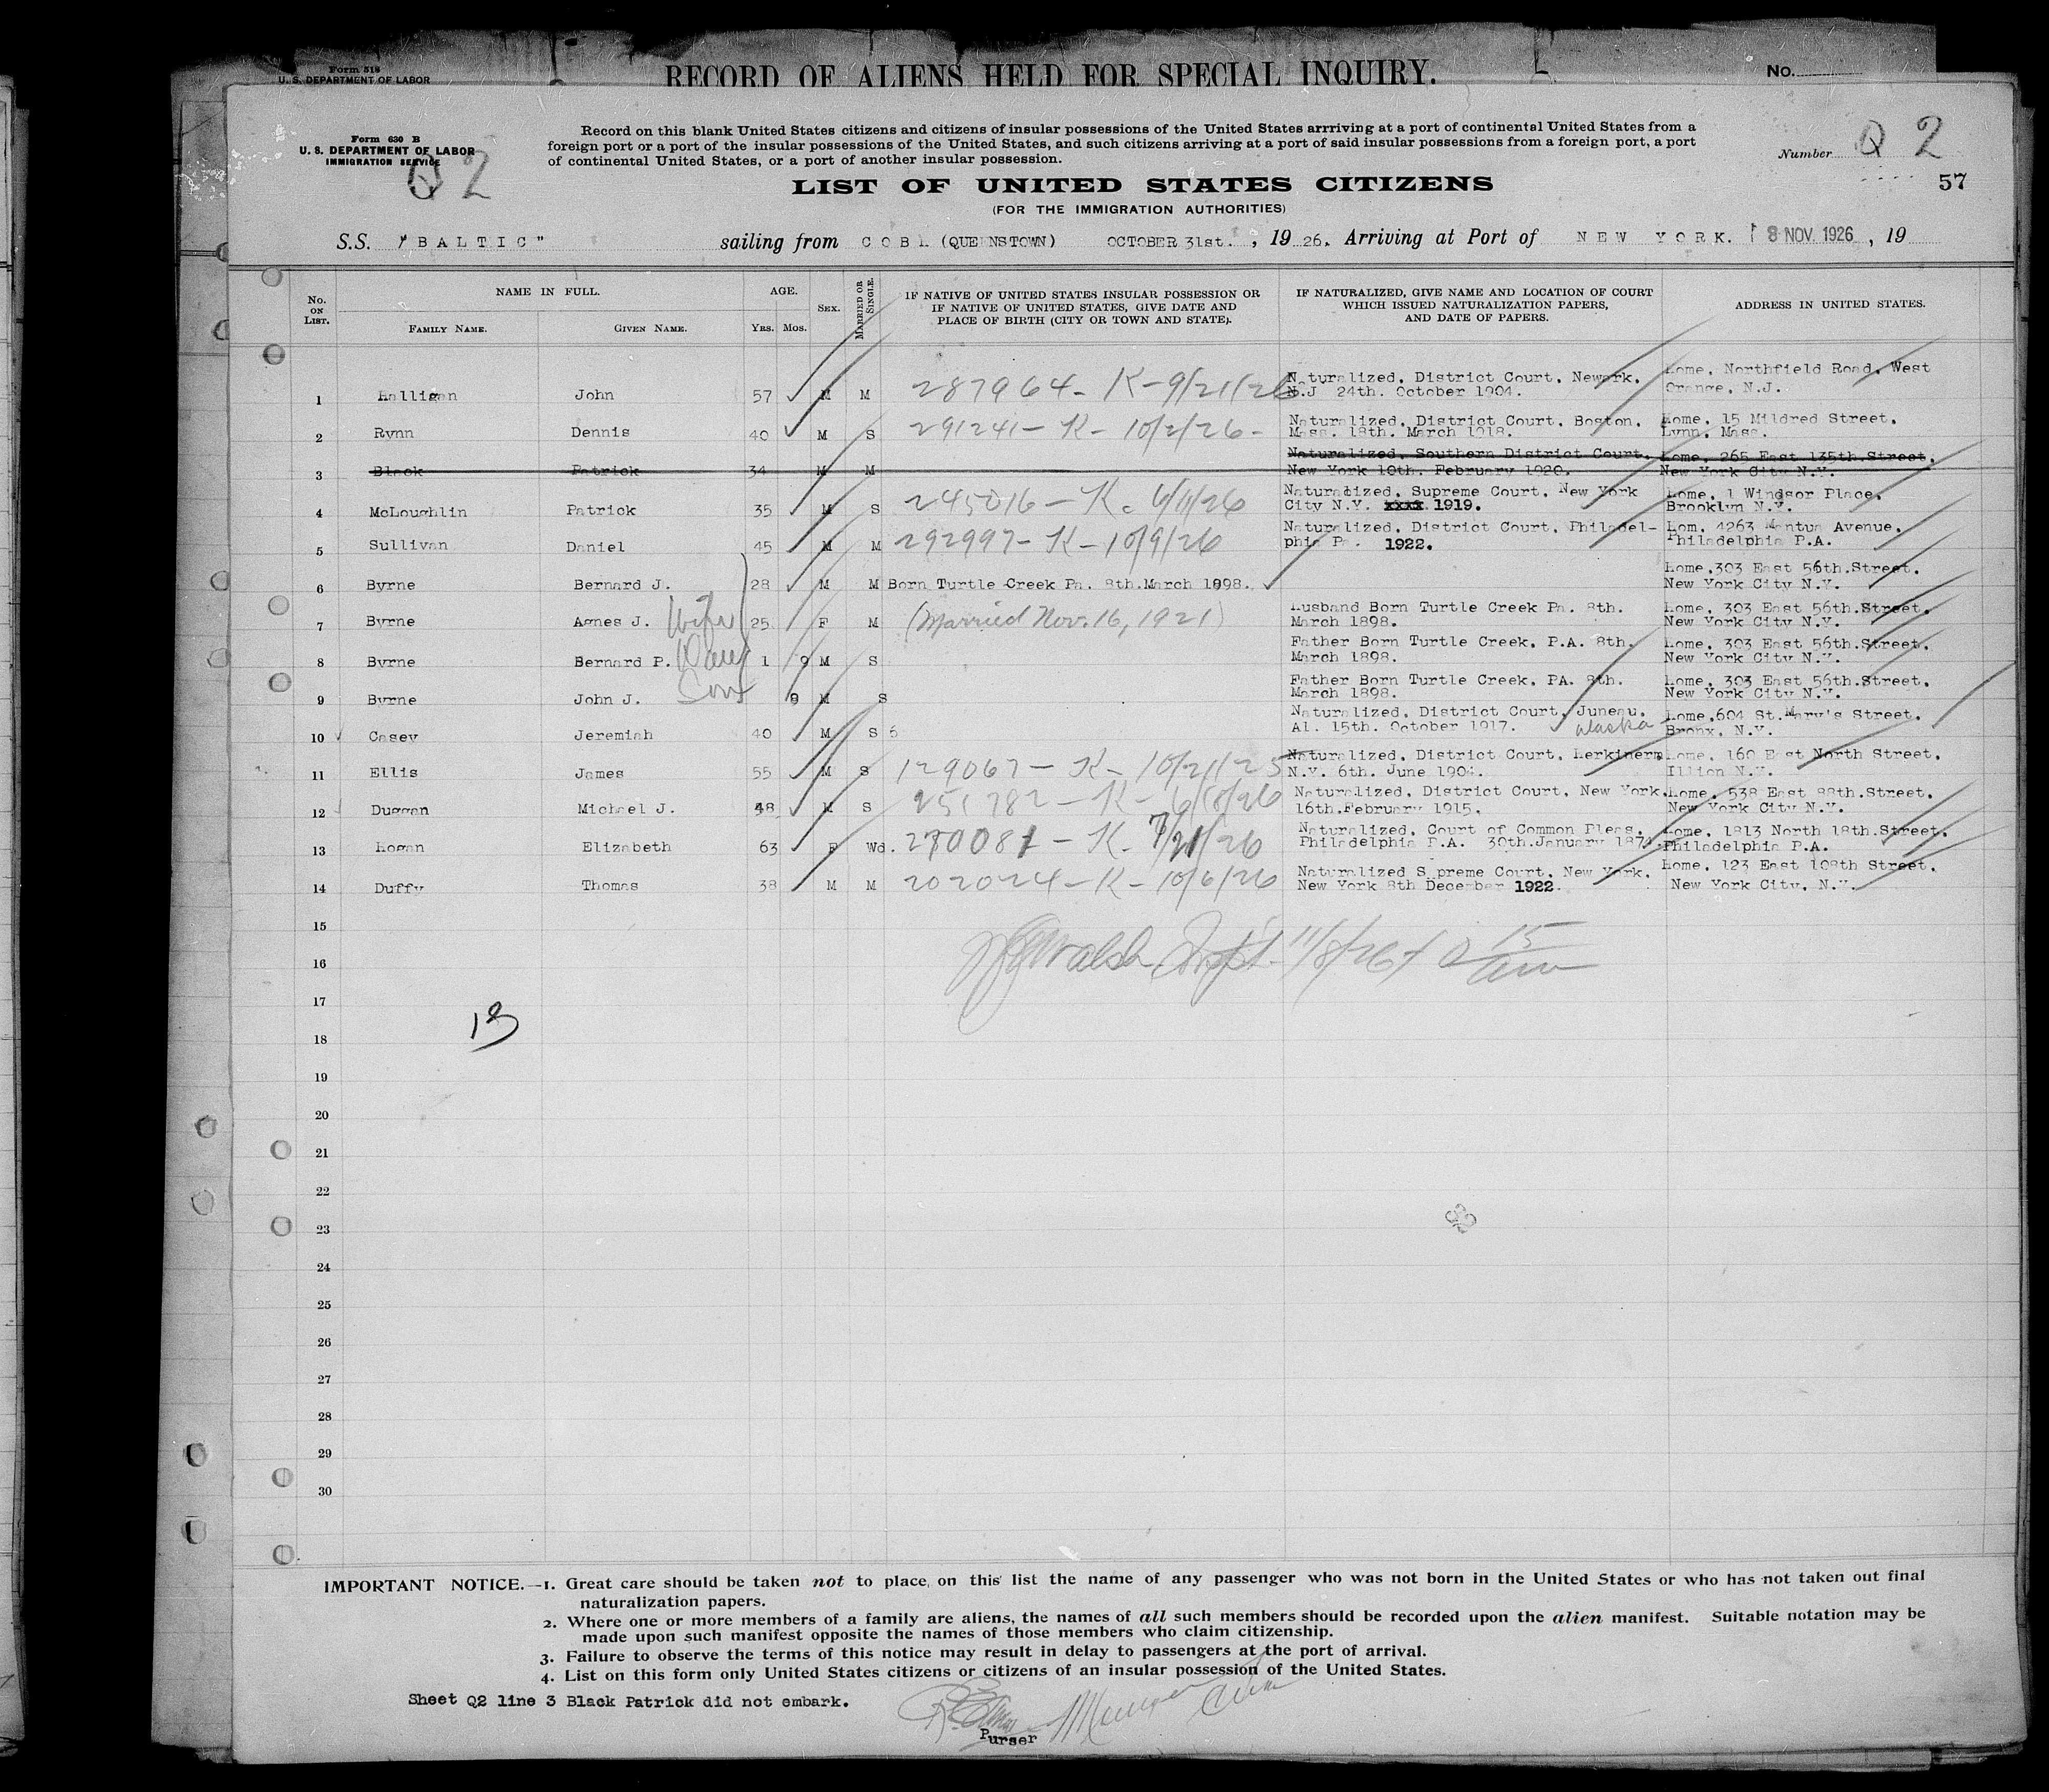 Form 518
U. S. DEPARTMENT OF LABOR
RECORD OF ALIENS HELD FOR SPECIAL INQUIRY.
No.
Form 630 B
U. S. DEPARTMENT OF LABOR
IMMIGRATION SERVICE
Q 2
Record on this blank United States citizens and citizens of insular possessions of the United States arrriving at a port of continental United States from a
foreign port or a port of the insular possessions of the United States, and such citizens arriving at a port of said insular possessions from a foreign port, a port
of continental United States, or a port of another insular possession.
Number Q 2
57
LIST OF UNITED STATES CITIZENS
(FOR THE IMMIGRATION AUTHORITIES)
S.S. "BALTIC" sailing from COBH (QUEENSTOWN) OCTOBER 31st. , 19 26. Arriving at Port of NEW YORK. 8 NOV. 1926 , 19
No. ON LIST. NAME IN FULL. AGE. SEX. MARRIED OR SINGLE. IF NATIVE OF UNITED STATES INSULAR POSSESSION OR IF NATIVE OF UNITED STATES, GIVE DATE AND PLACE OF BIRTH (CITY OR TOWN AND STATE). IF NATURALIZED, GIVE NAME AND LOCATION OF COURT WHICH ISSUED NATURALIZATION PAPERS, AND DATE OF PAPERS. ADDRESS IN UNITED STATES.
FAMILY NAME. GIVEN NAME. YRS. MOS.
1 Halligan John 57 M M 287964- K-9/21/26 Naturalized, District Court, Newark, N.J 24th. October 1904. Home, Northfield Road, West Orange, N.J.
2 Rynn Dennis 40 M S 291241- K- 10/2/26- Naturalized, District Court, Boston, Mass. 18th. March 1918. Home, 15 Mildred Street, Lynn, Mass.
3 Black Patrick 34 M M Naturalized, Southern District Court, New York 10th. February 1920. Home, 265 East 135th.Street, New York City N.Y.
4 McLoughlin Patrick 35 M S 245016- K. 6/11/26 Naturalized, Supreme Court, New York City N.Y. xxxx 1919. Home, 1 Windsor Place, Brooklyn N.Y.
5 Sullivan Daniel 45 M M 292997- K-10/9/26 Naturalized, District Court, Philadel- phia Pa. 1922. Hom, 4263 Mantua Avenue, Philadelphia P.A.
6 Byrne Bernard J. 28 M M Born Turtle Creek Pa. 8th.March 1898. Home,303 East 56th.Street, New York City N.Y.
7 Byrne Agnes J. Wife 25 F M (Married Nov. 16, 1921) Husband Born Turtle Creek Pa. 8th. March 1898. Home, 303 East 56th.Street, New York City N.Y.
8 Byrne Bernard P. 1 9 M S Father Born Turtle Creek, P.A. 8th. March 1898. Home, 303 East 56th.Street, New York City N.Y.
9 Byrne John J. Son 9 M S Father Born Turtle Creek, PA. 8th. March 1898. Home, 303 East 56th.Street, New York City N.Y.
10 Casey Jeremiah 40 M S 6 Naturalized, District Court, Juneau, Al. 15th. October 1917. Alaska Home,604 St.Mary's Street, Bronx, N.Y.
11 Ellis James 55 M S 129067- K- 10/21/25 Naturalized, District Court, Herkinerm N.Y. 6th. June 1904. Home, 160 East North Street, Illion N.Y.
12 Duggan Michael J. 48 M S 251782- K- 6/18/26 Naturalized, District Court, New York, 16th.February 1915. Home, 538 East 88th.Street, New York City N.Y.
13 Hogan Elizabeth 63 F Wd. 270081- K- 7/21/26 Naturalized, Court of Common Pleas, Philadelphia P.A. 30th.January 1874. Home, 1813 North 18th.Street, Philadelphia P.A.
14 Duffy Thomas 38 M M 202024-K-10/6/26 Naturalized Supreme Court, New York, New York 8th December 1922. Home, 123 East 108th Street, New York City, N.Y.
15
Walsh Inspt. 11/8/26
16
17
13
18
19
20
21
22
23
24
25
26
27
28
29
30
IMPORTANT NOTICE.—1. Great care should be taken not to place on this list the name of any passenger who was not born in the United States or who has not taken out final
naturalization papers.
2. Where one or more members of a family are aliens, the names of all such members should be recorded upon the alien manifest. Suitable notation may be
made upon such manifest opposite the names of those members who claim citizenship.
3. Failure to observe the terms of this notice may result in delay to passengers at the port of arrival.
4. List on this form only United States citizens or citizens of an insular possession of the United States.
Sheet Q2 line 3 Black Patrick did not embark.
Purser